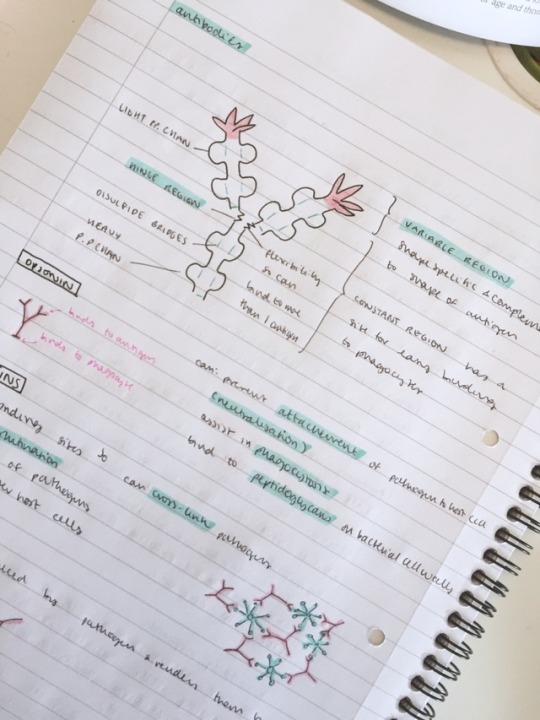 or age and
antibodies
LIGHT P.P. CHAIN
HINGE REGION
DISULFIDE BRIDGES
HEAVY
P.P. CHAIN
flexibility
so can
bind to more
than 1 antigen
VARIABLE REGION
shape specific & complem
to shape of antigen
CONSTANT REGION has a
site for easy binding
to phagocytes
OPSONIN
binds to antigen
binds to phagocyte
can: prevent attachment of pathogen to host cell
(neutralisation)
assist in phagocytosis
bind to peptidoglycans on bacterial cell walls
INS
binding sites to can cross-link pathogens
of pathogens
host cells
by pathogen & renders them